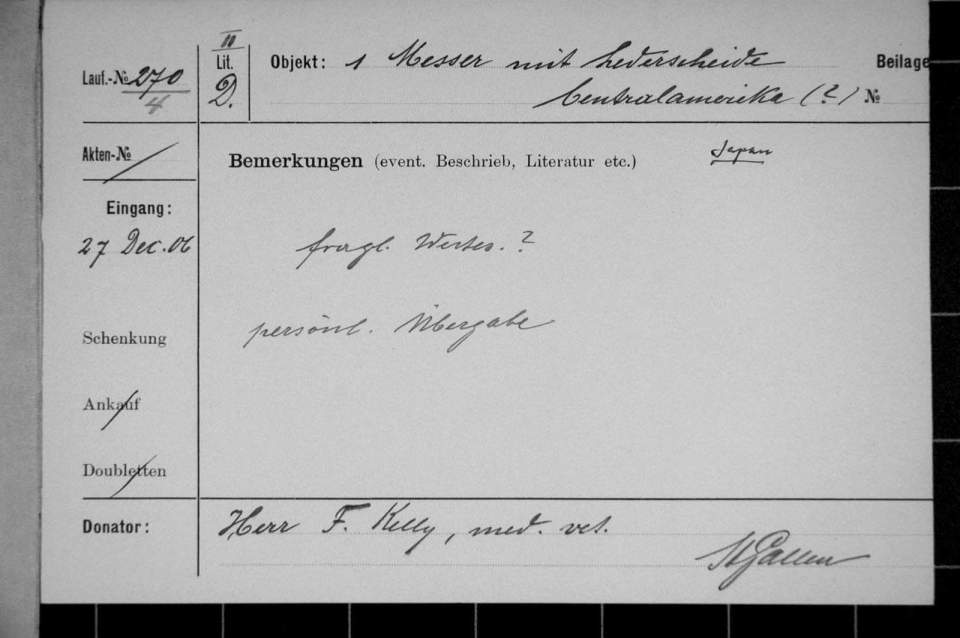 II
Lauf.-№ 270/4
Lit. D.
Objekt: 1 Messer mit Lederscheide
Centralamerika (?)
Beilage
№
Akten-№
Bemerkungen (event. Beschrieb, Literatur etc.)
Japan
Eingang:
27 Dec. 06
fragl. Wertes.?
Schenkung
persönl. Übergabe
Ankauf
Doubletten
Donator: Herr F. Kelly, med. vet.
St Gallen